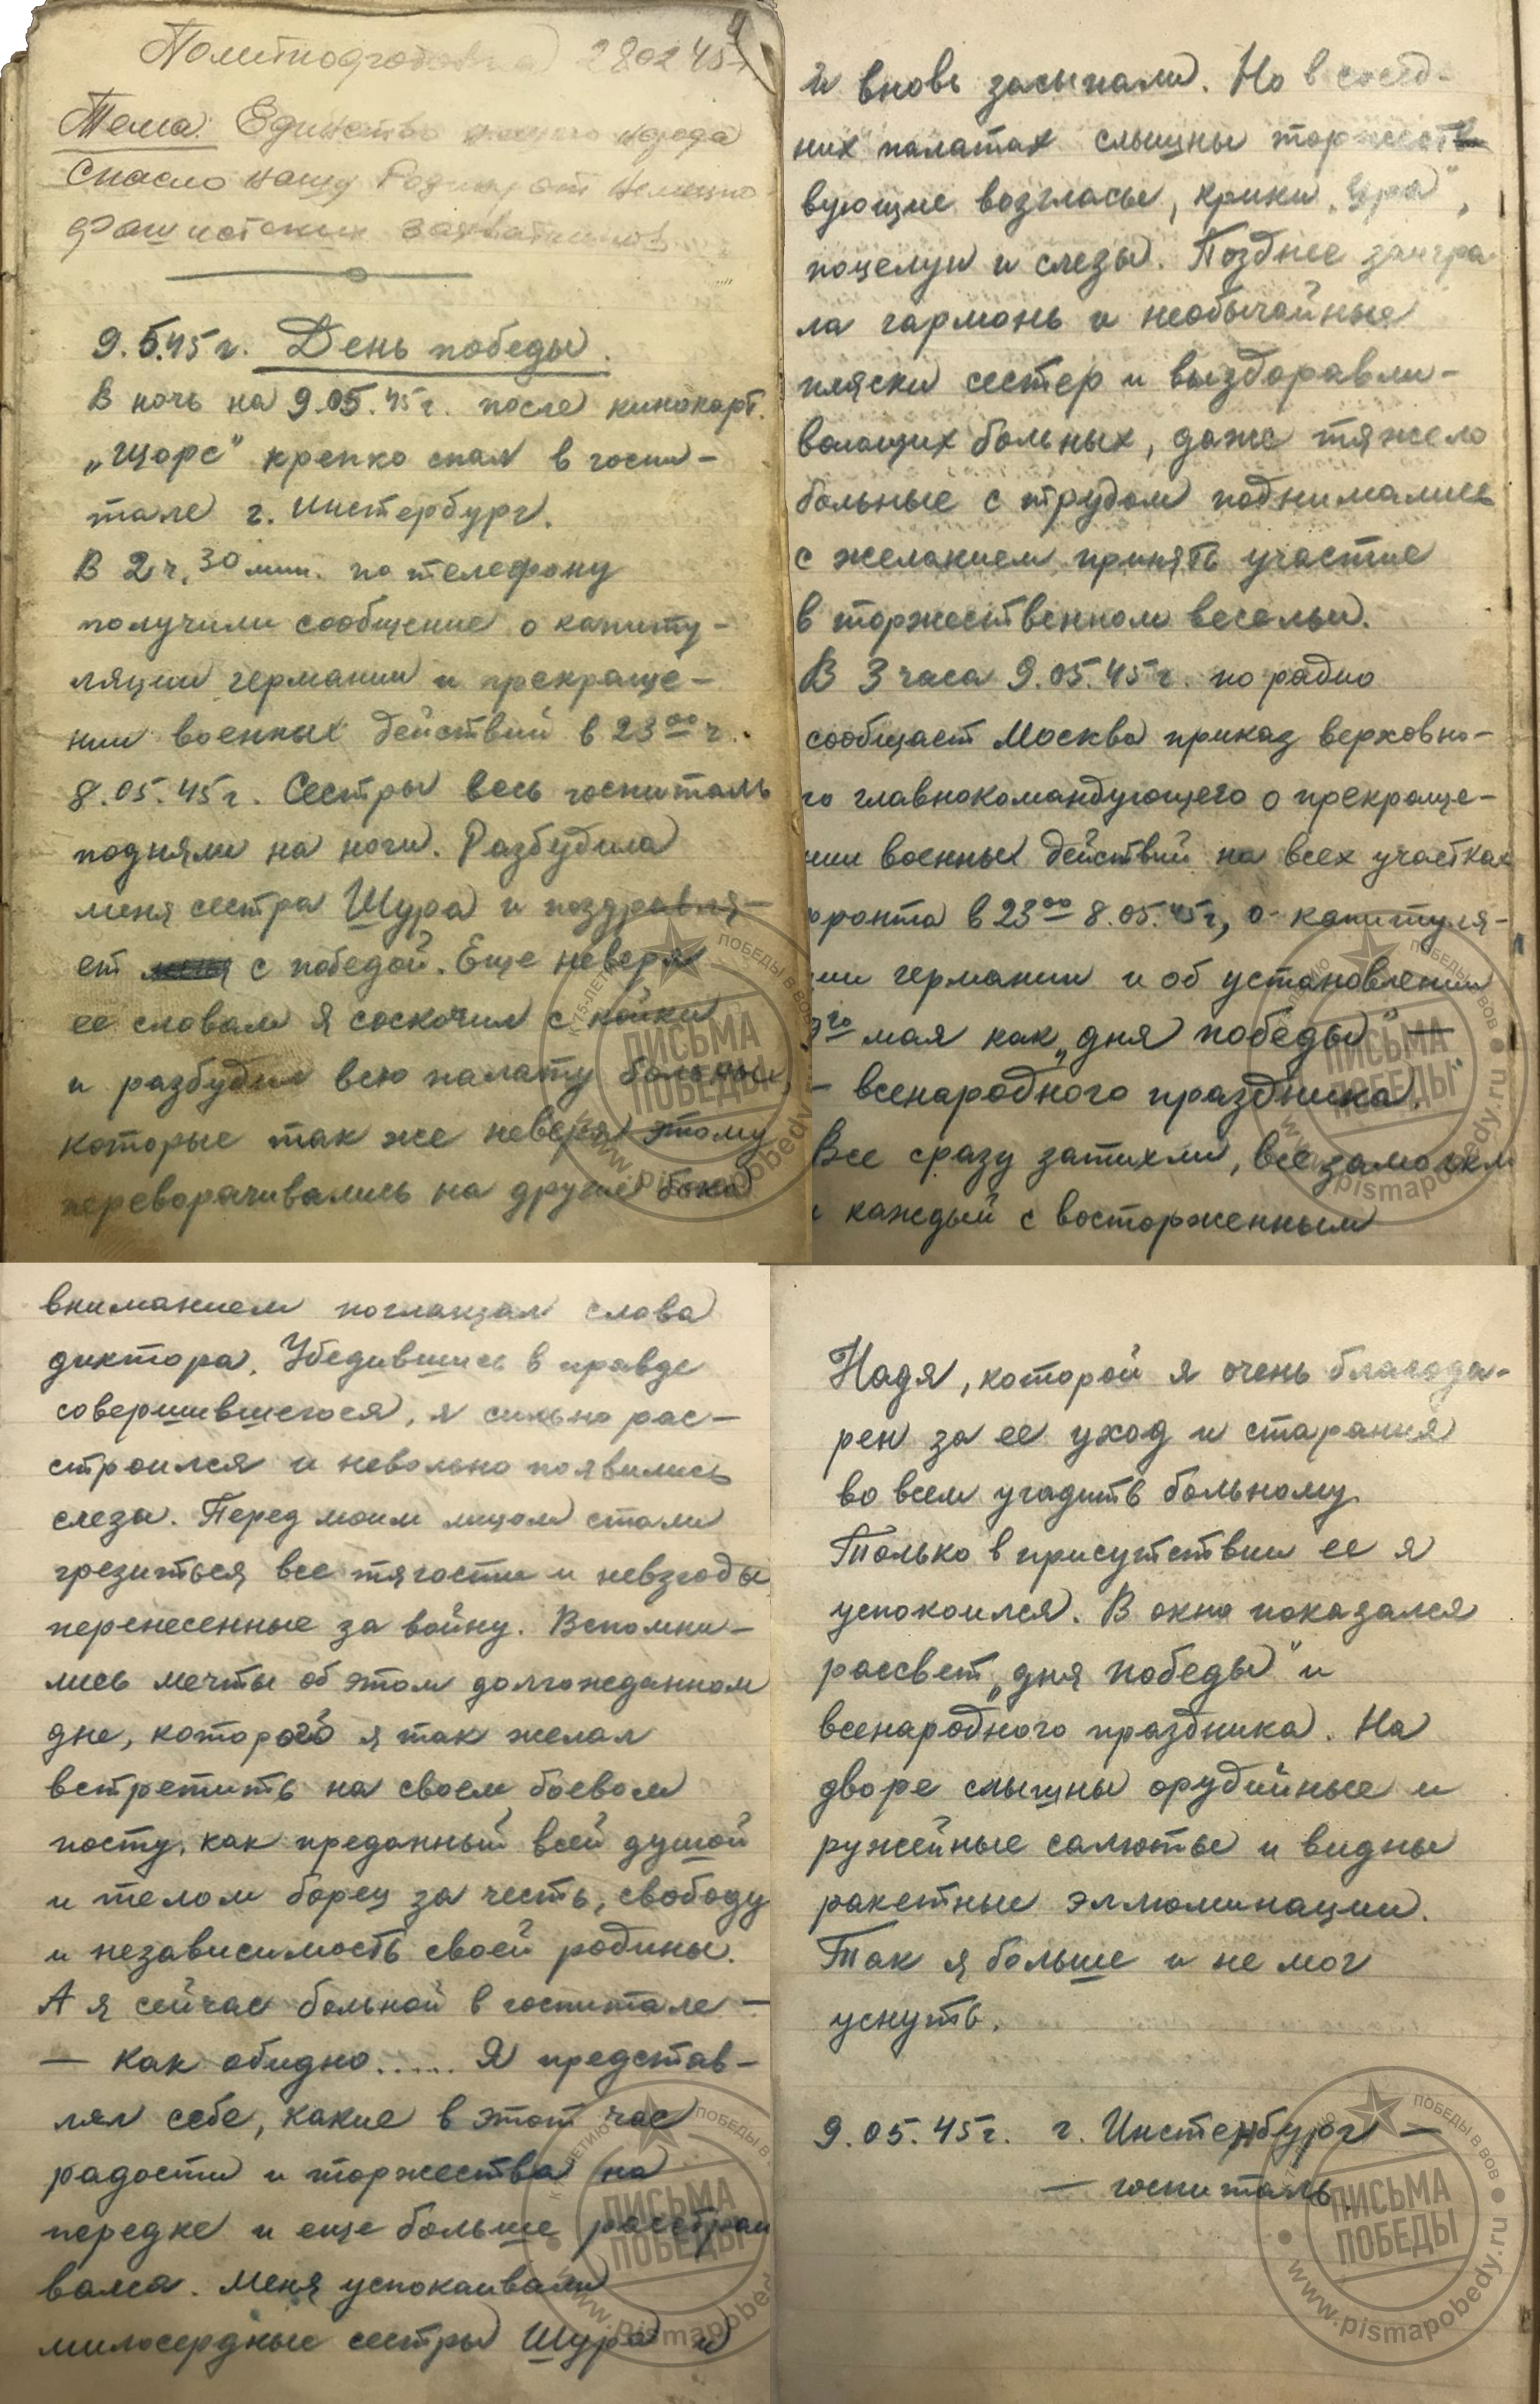 Политподготовка 28 02 45 г
Тема: Единство нашего народа
спасло нашу Родину от немецко
фашистских захватчиков
9.5.45 г. День победы.
В ночь на 9.05.45 г. после кинокарт.
„Щорс" крепко спал в госпи-
тале г. Инстербург.
В 2 ч. 30 мин. по телефону
получили сообщение о капиту-
ляции германии и прекраще-
нии военных действий в 23 00 ч.
8.05.45 г. Сестры весь госпиталь
подняли на ноги. Разбудила
меня сестра Шура и поздравля-
ет с победой. Еще неверя
ее словам я соскочил с койки
и разбудил всю палату больных,
которые так же неверя этому
переворачивались на другие бока
и вновь засыпали. Но в сосед-
них палатах слышны торжеств
вующие возгласы, крики „Ура",
поцелуи и слезы. Позднее заигра
ла гармонь и необычайные
пляски сестер и выздоравли-
вающих больных, даже тяжело
больные с трудом поднимались
с желанием принять участие
в торжественном весельи.
В 3 часа 9.05.45 г. по радио
сообщает Москва приказ верховно-
го главнокомандующего о прекраще-
нии военных действий на всех участках
фронта в 23 00 8.05.45 г, о капитуля-
ции германии и об установлении
9го мая как „дня победы" —
— всенародного праздника."
Все сразу затихли, все замолкли
и каждый с восторженным
вниманием поглащал слова
диктора. Убедившись в правде
совершившегося, я сильно рас-
строился и невольно появились
слеза. Перед моим лицом стали
грезиться все тягости и невзгоды
перенесенные за войну. Вспомни-
лись мечты об этом долгожданном
дне, которого я так желал
встретить на своем боевом
посту, как преданный всей душой
и телом борец за честь, свободу
и независимость своей родины.
А я сейчас больной в госпитале —
— как обидно..... Я представ-
лял себе, какие в этот час
радости и торжества на
передке и еще больше расстраи
вался. Меня успокаивали
милосердные сестры Шура и
Надя, которой я очень благода-
рен за ее уход и старания
во всем угодить больному.
Только в присутствии ее я
успокоился. В окна показался
рассвет „дня победы" и
всенародного праздника. На
дворе слышны орудийные и
ружейные салюты и видны
ракетные эллюминации.
Так я больше и не мог
уснуть.
9.05.45 г. г. Инстенбург —
— госпиталь.
К 75-ЛЕТИЮ ПОБЕДЫ В ВОВ
ПИСЬМА
ПОБЕДЫ
www.pismapobedy.ru